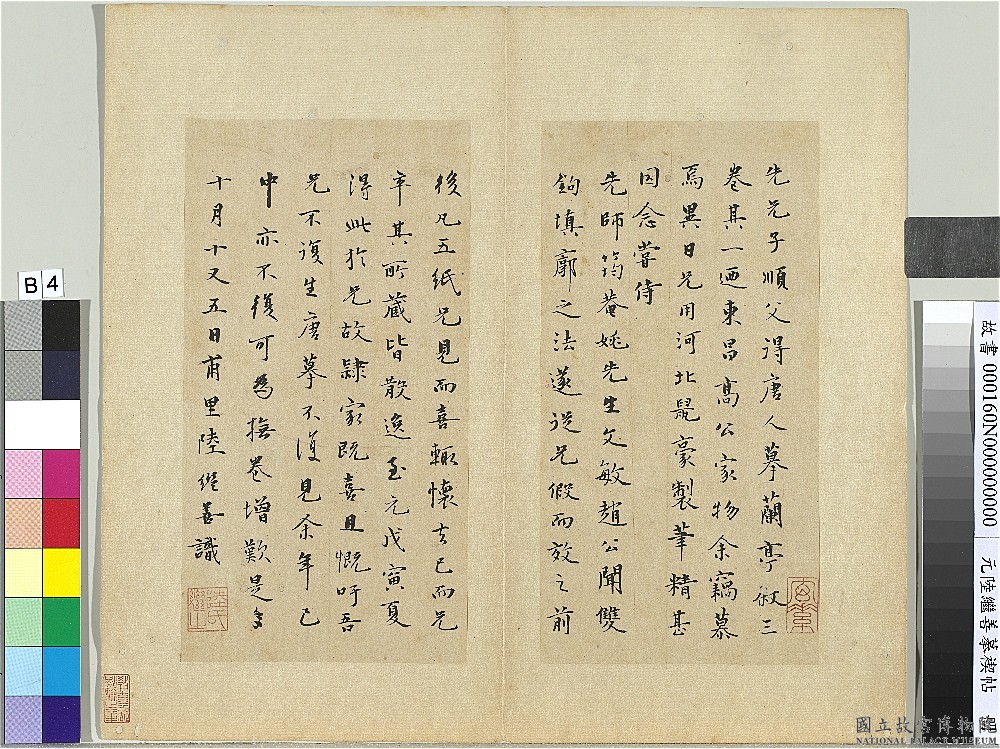 先兄子順父得唐人摹蘭亭叙三
卷其一廼東昌高公家物余竊慕
焉異日兄用河北鼠毫製筆精甚
因念嘗侍
先師筠菴姚先生文敏趙公聞雙
鉤填廓之法遂從兄假而效之前
後凡五紙兄見而喜輙懷去已而兄
卒其所藏皆散逸至元戊寅夏
得此於兄故隷家既喜且慨吁吾
兄不復生唐摹不復見余年已
中亦不復可為撫卷增歎是年
十月十又五日甫里陸繼善識
B 4
故書 000160N000000000
元陸繼善摹禊帖
國立故宮博物院
NATIONAL PALACE MUSEUM